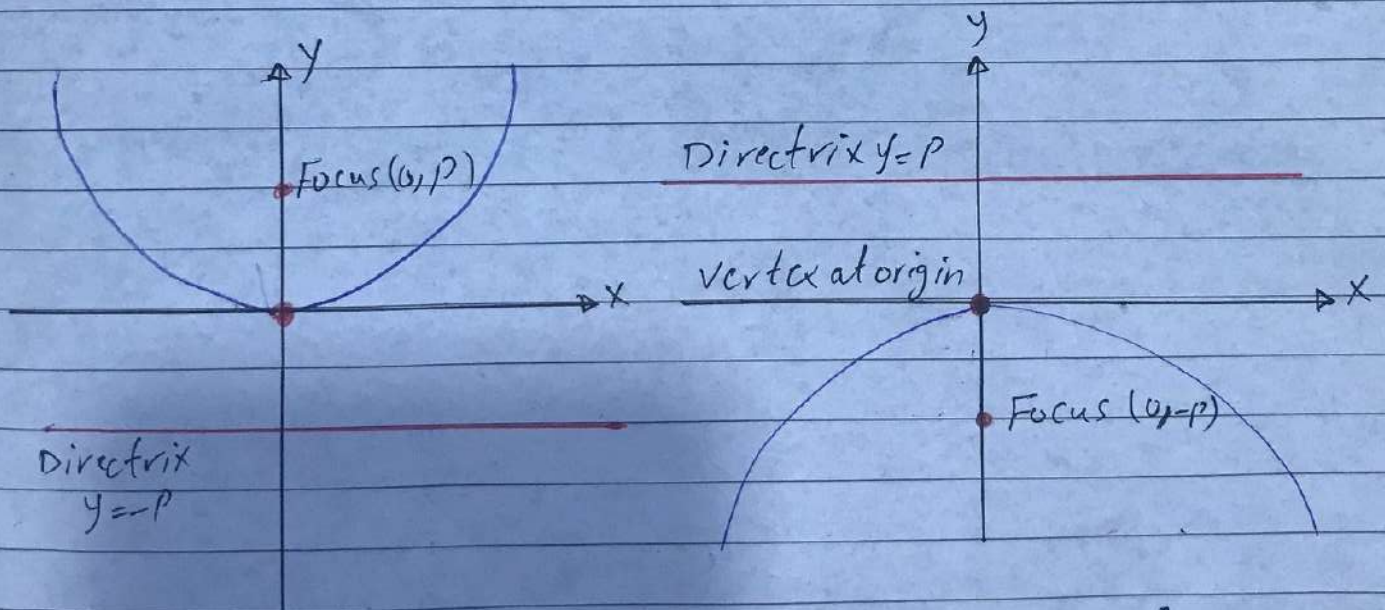 y
Focus(0,P)
x
Directrix
y=-P
y
Directrix y=P
Vertex at origin
x
Focus (0,-P)